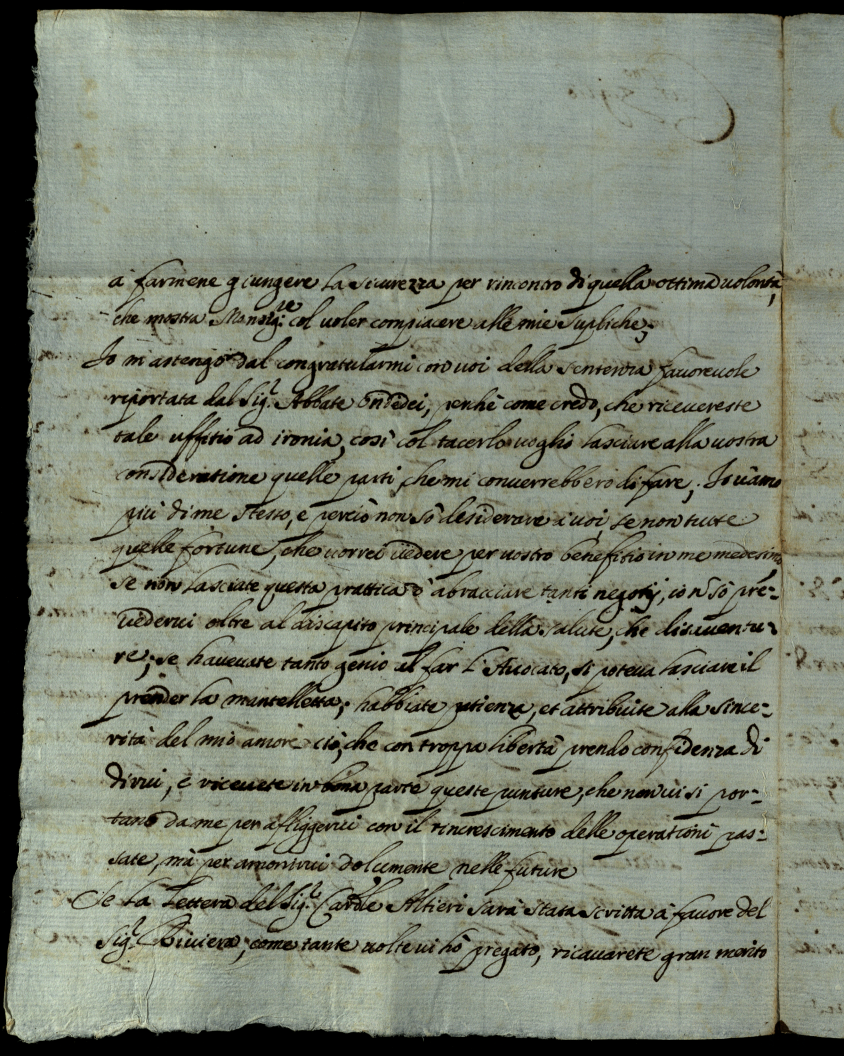 à farmene giungere la sicurezza per rincontro di quella ottima uolontà,
che mostra Monsig.re col uoler compiacere alle mie supliche;
Io m'astengo dal congratularmi con uoi della sentenza fauoreuole
riportata dal Sig.r Abbate Ondedei, perche come credo, che riceuereste
tale uffitio ad ironia, così col tacerlo uoglio lasciare alla uostra
consideratione quelle parti, che mi conuerrebbero di fare; Io u'amo
più di me stesso, e perciò non sò desiderare à uoi se non tutte
quelle fortune, che uorrei uedere per uostro benefitio in me medesimo
se non lasciate questa prattica d'abracciare tanti negotij, io n sò pre-
uederui oltre al discapito principale della salute, che disauentu-
re; se haueuate tanto genio al far l'Auocato, si poteua lasciare il
prender la mantelletta; habbiate patienza, et attribuite alla since-
rità del mio amore ciò, che con troppa libertà prendo confidenza di
dirui, e riceuete in bona parte queste punture, che non ui si por-
tano da me per affliggerui con il rincrescimento delle operationi pas-
sate, mà per amonirui dolcemente nelle future
Se la Lettera del Sig.r Car.le Altieri sarà stata scritta à fauore del
Sig.r Riuiera, come tante uolte ui hò pregato, ricauarete gran merito